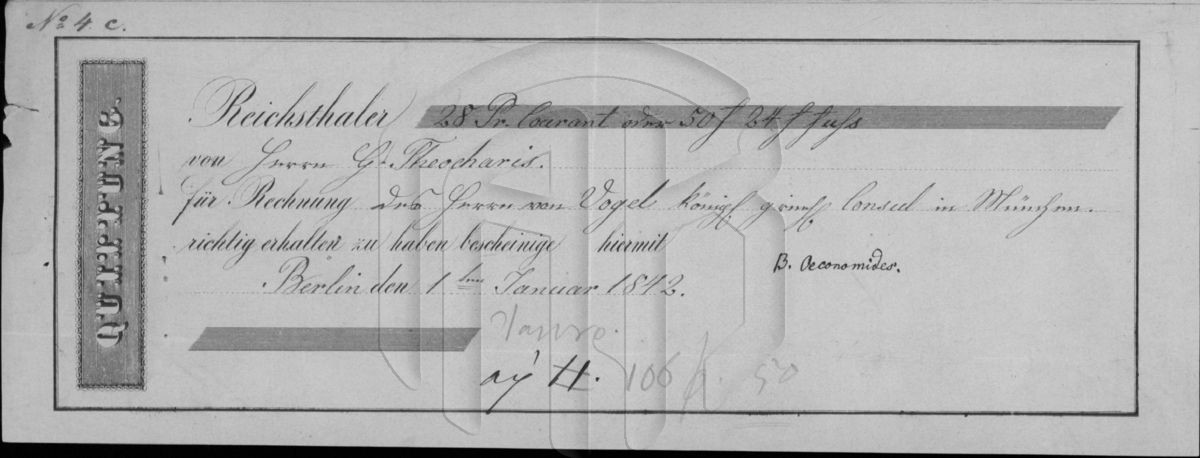 No 4. c.
QUITTUNG.
Reichsthaler 28 Pr. Courant oder 50 f 24 f fuss
von Herrn G. Theocharis.
für Rechnung des Herrn von Vogel königl griech Consul in München.
richtig erhalten zu haben bescheinige hiermit
B. Oeconomides.
Berlin den 1ten Januar 1842.
106 f. 50